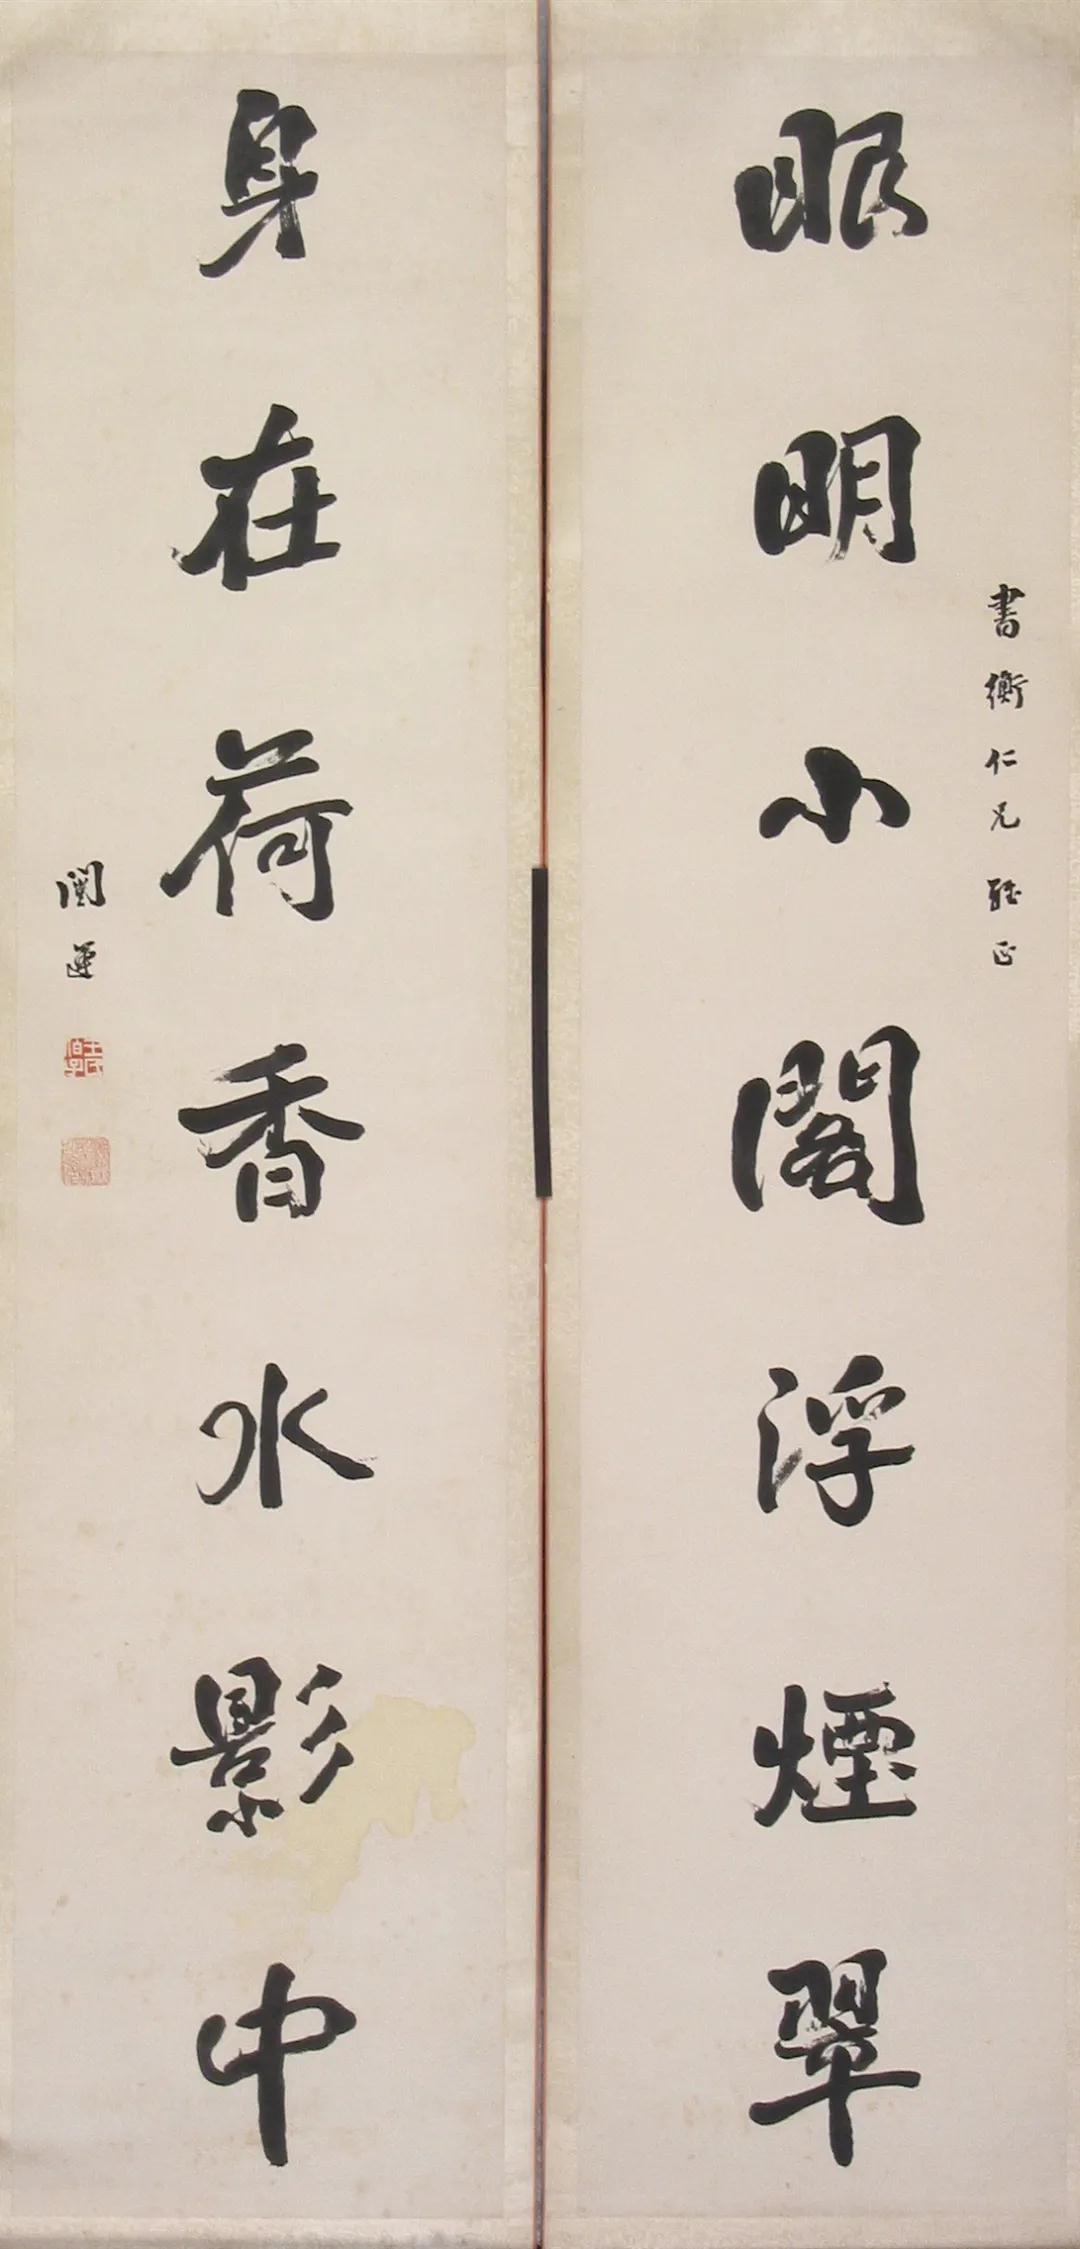 眼明小閣浮煙翠
書衡仁兄雅正
身在荷香水影中
闓運